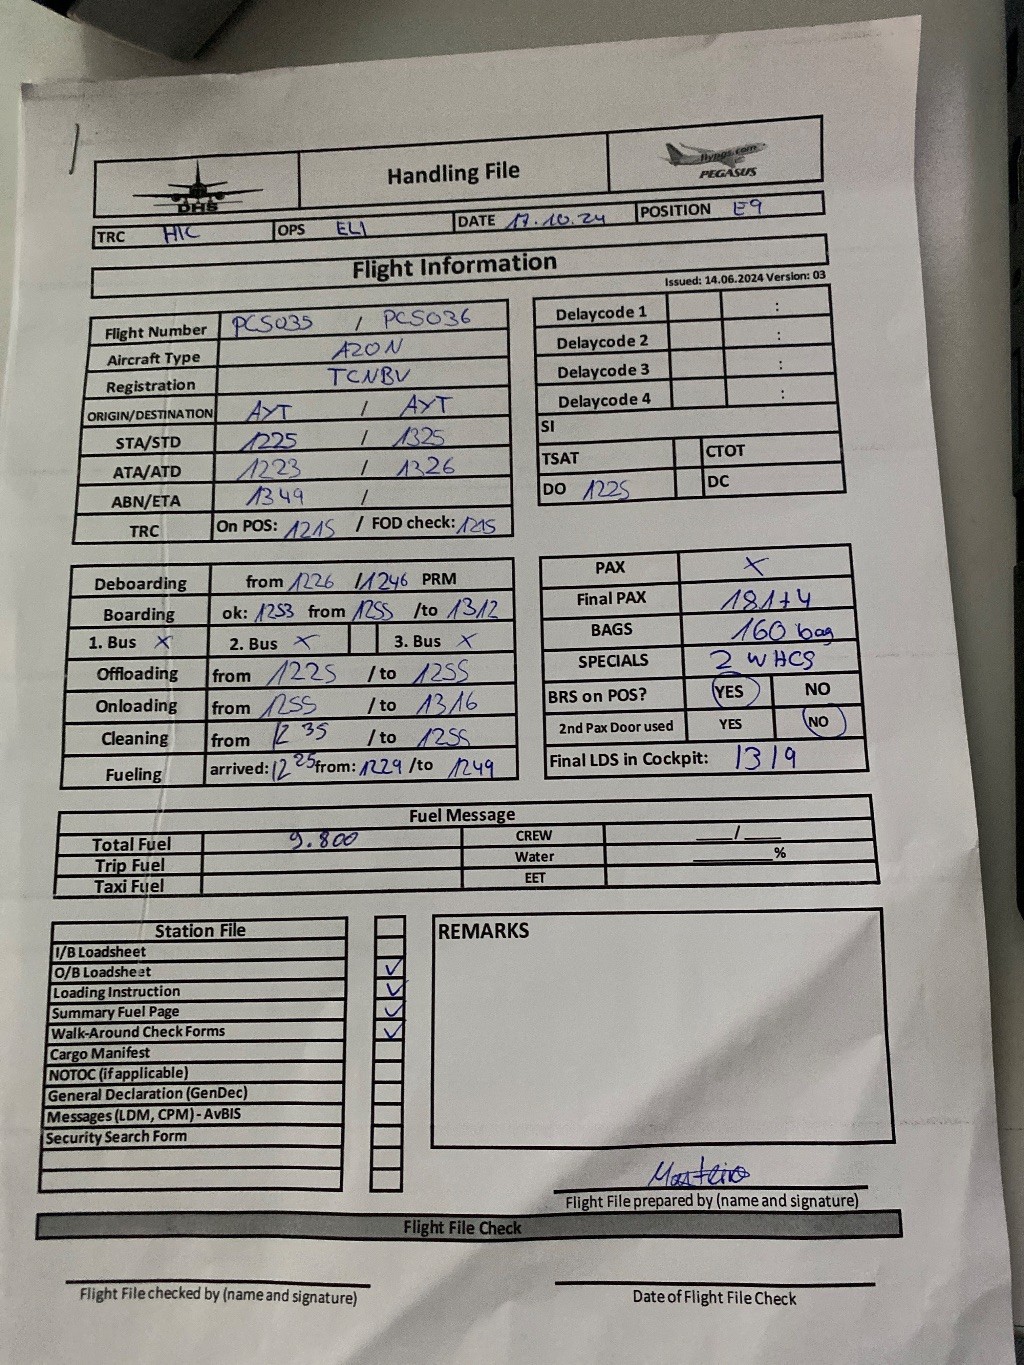 DHS
Handling File
flypgs.com
PEGASUS
TRC HIC OPS ELI DATE 17.10.24 POSITION E9
Flight Information
Issued: 14.06.2024 Version: 03
Flight Number PC5035 / PC5036
Aircraft Type A20N
Registration TCNBV
ORIGIN/DESTINATION AYT / AYT
STA/STD 1225 / 1325
ATA/ATD 1223 / 1326
ABN/ETA 1349 /
TRC On POS: 1215 / FOD check: 1215
Delaycode 1 :
Delaycode 2 :
Delaycode 3 :
Delaycode 4 :
SI
TSAT CTOT
DO 1225 DC
Deboarding from 1226 / 1246 PRM
Boarding ok: 1253 from 1255 /to 1312
1. Bus X 2. Bus X 3. Bus X
Offloading from 1225 /to 1255
Onloading from 1255 /to 1316
Cleaning from 1235 /to 1255
Fueling arrived: 1225 from: 1229 /to 1249
PAX X
Final PAX 181+4
BAGS 160 bag
SPECIALS 2 WHCS
BRS on POS? YES NO
2nd Pax Door used YES NO
Final LDS in Cockpit: 1319
Fuel Message
Total Fuel 9.800 CREW ___/___
Trip Fuel Water ________%
Taxi Fuel EET
Station File
I/B Loadsheet
O/B Loadsheet ✓
Loading Instruction ✓
Summary Fuel Page ✓
Walk-Around Check Forms ✓
Cargo Manifest
NOTOC (if applicable)
General Declaration (GenDec)
Messages (LDM, CPM) - AvBIS
Security Search Form
REMARKS
Flight File prepared by (name and signature)
Flight File Check
Flight File checked by (name and signature)
Date of Flight File Check